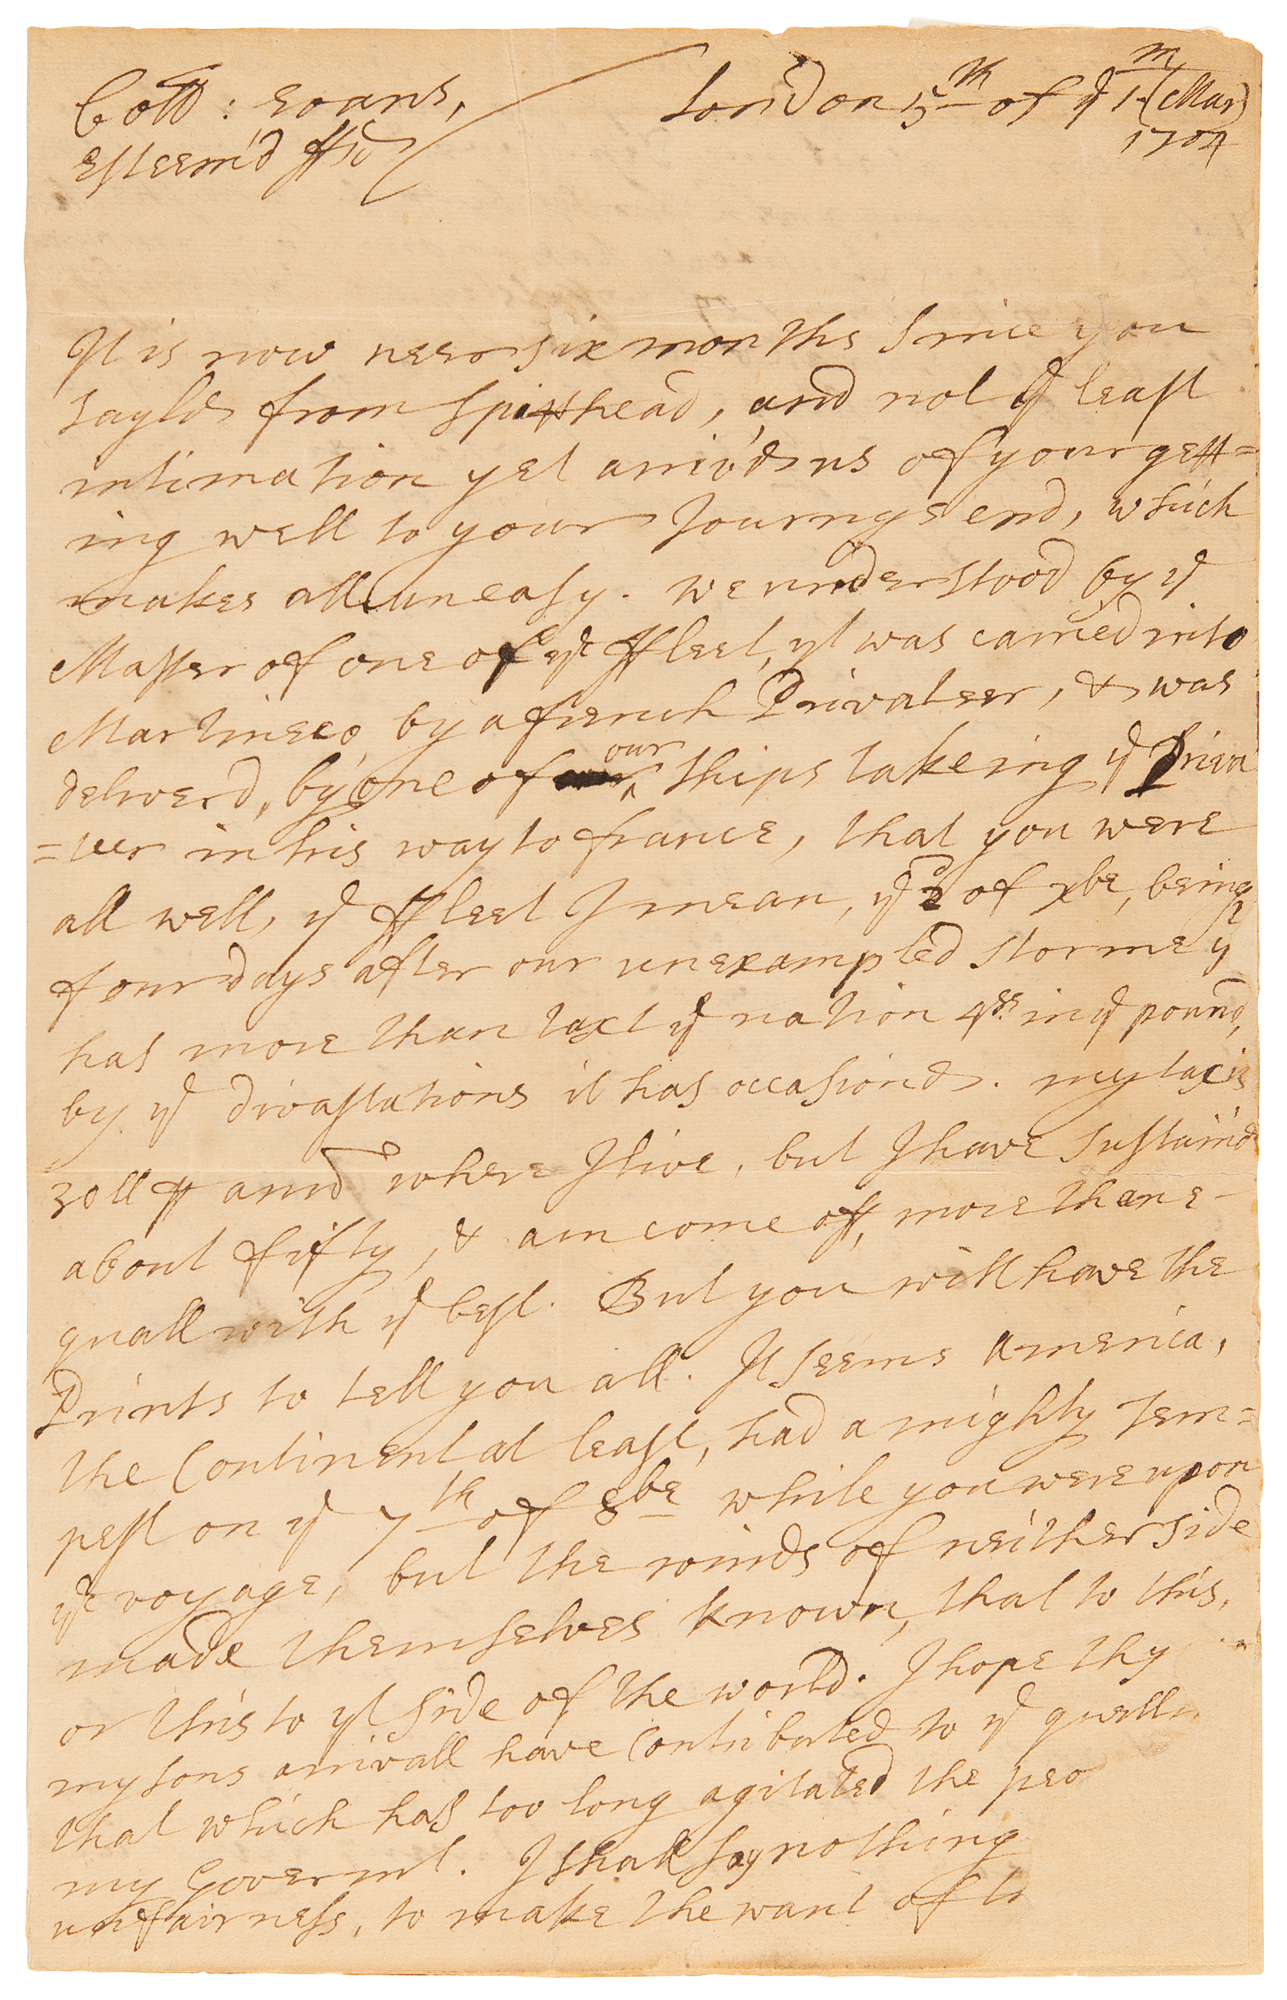 Coll: Evans,
Esteem'd ffrd
London 5th of ye 1m (Mar)
1704
It is now neer six months since you
sayld from Spitthead, and not ye least
intimation yet arriv'd us of your gett=
ing well to your Journys end, which
makes all uneasy. we understood by ye
Master of one of ye ffleet, yt was carried into
Martineco by a french Privateer, & was
deliverd, by one of our ships takeing ye Priva
=teer in his way to france, that you were
all well, ye ffleet I mean, ye 2d of xbr, being
four days after our unexampled storme yt
has more than taxt ye nation 4ss in ye pound,
by ye divastations it has occasiond. my tax is
30ll p annd where I live, but I have sustaind
about fifty, & am come off, more then e-
quall with ye best. But you will have the
Prints to tell you all. It seems America,
the Continent at least, had a mighty Tem=
pest on ye 7th of 8be while you were upon
ye voyage, but the winds of neither side
made themselves known, that to this,
or this to yt side of the world. I hope thy
my sons arrivall have Contributed to ye quell
that which has too long agitated the peo
my Govermt. I shall say nothing
unfairness, to make the want of